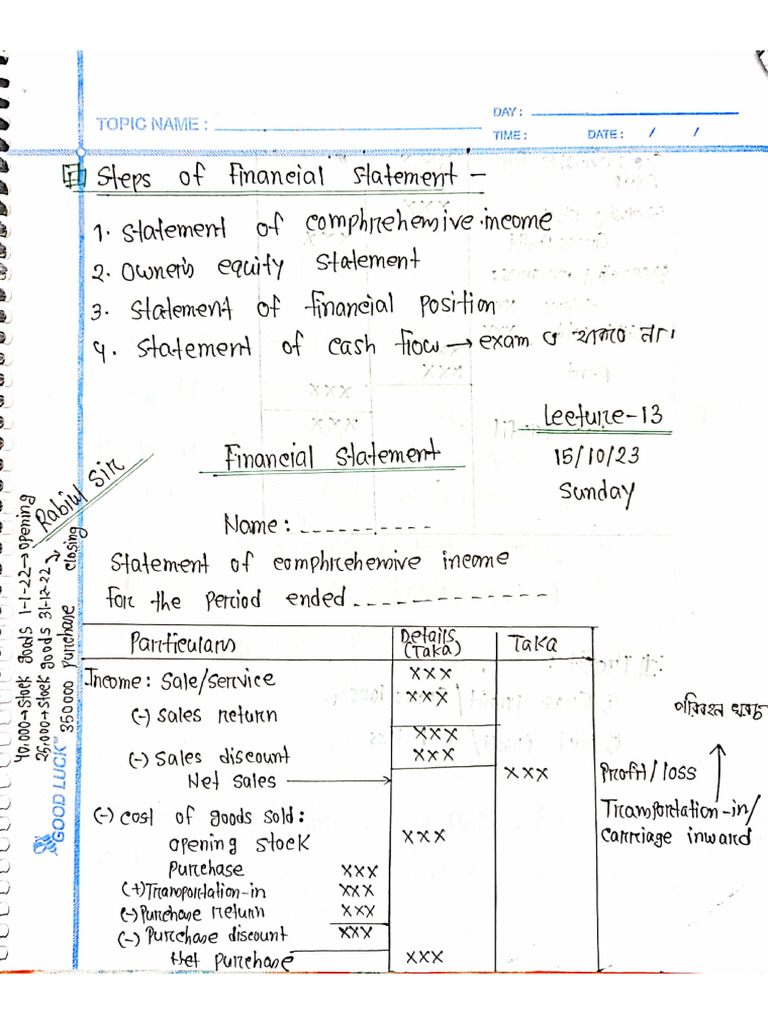 DAY :
TOPIC NAME :
TIME : DATE : / /
Steps of Financial Statement -
1. Statement of comphrehemive income
2. Owner's equity Statement
3. Statement of financial position
4. Statement of cash flow → exam এ থাকবে না।
Lecture-13
15/10/23
Sunday
Financial Statement
Rabiul Sir
Name : ----------
Statement of comphrehemive income
For the Period ended -------------
Particulars Details (Taka) Taka
Income: Sale/Service xxx
(-) Sales return xxx
xxx
(-) Sales discount xxx
Net sales → xxx
(-) Cost of goods sold:
opening stock xxx
Purchase xxx
(+) Transportation-in xxx
(-) Purchase return xxx
(-) Purchase discount xxx
Net purchase xxx
পরিবহন খরচ
Profit/loss
Transportation-in/
Carriage inward
40,000→Stock goods 1-1-22→opening
25,000→Stock goods 31-12-22→closing
350000 purchase
GOOD LUCK